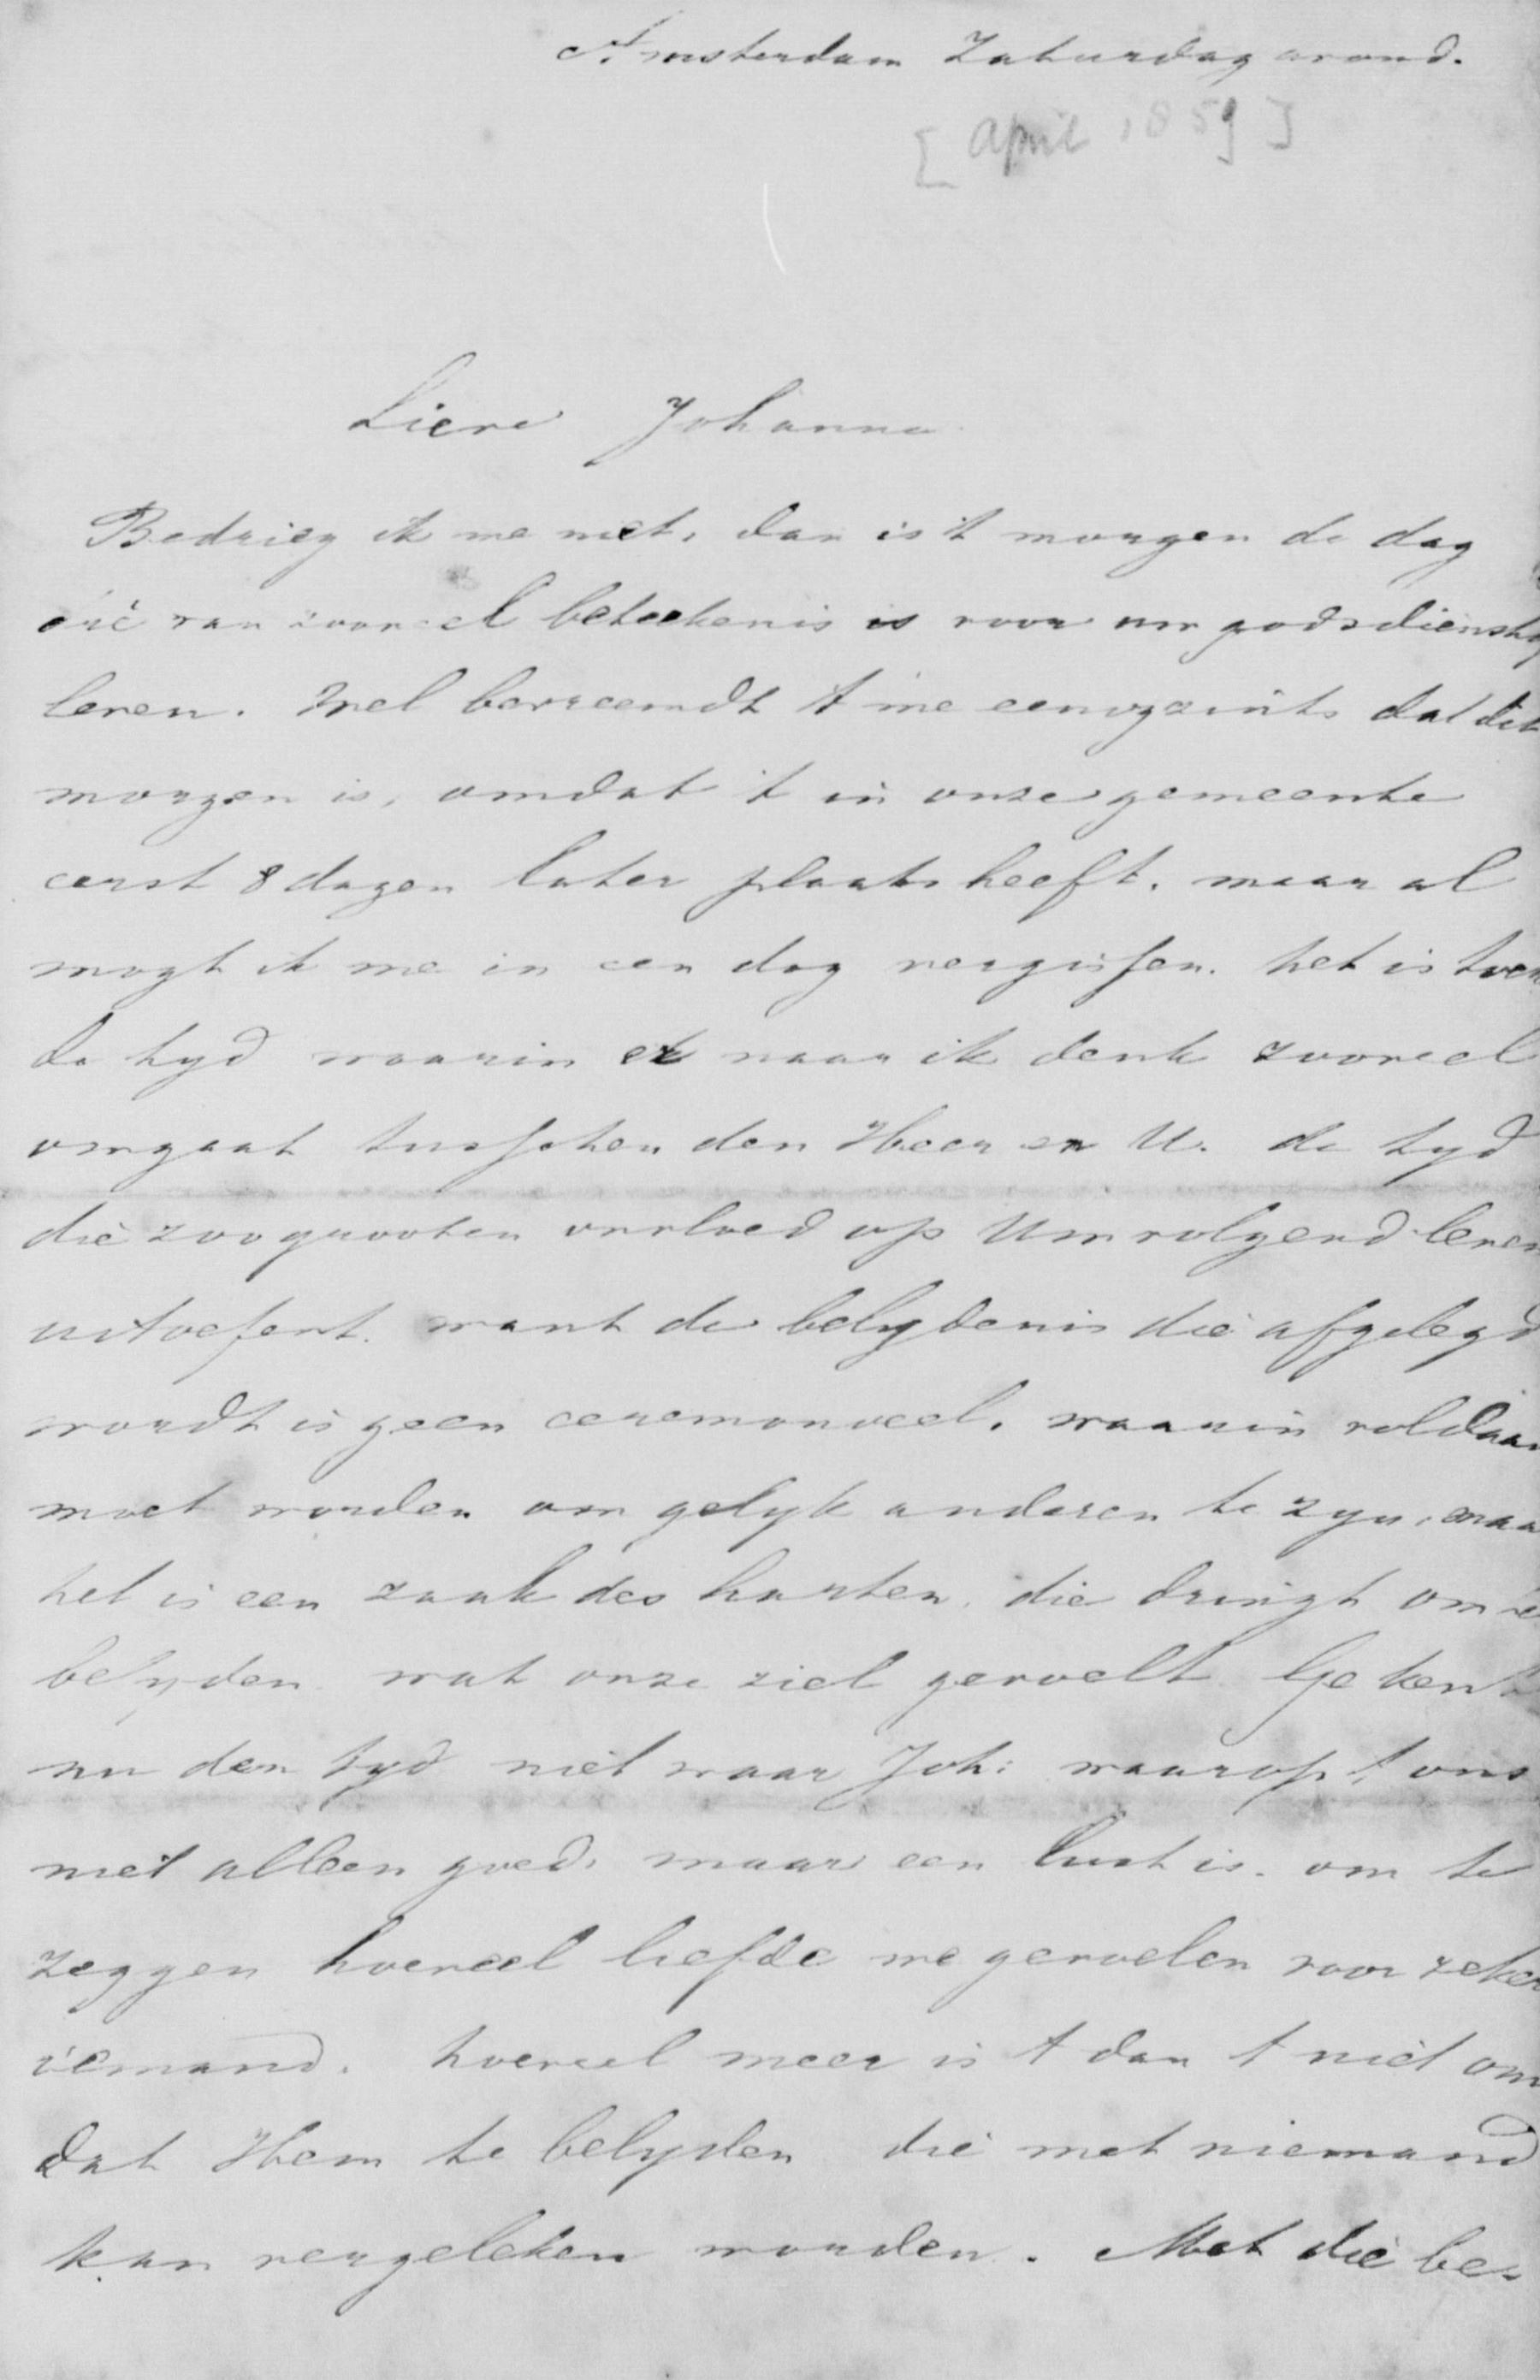 Amsterdam Zaturdag avond.
[April 1859]
Lieve Johanna
Bedrieg ik me niet, dan is 't morgen de dag
die van zooveel beteekenis is voor uw godsdienstig
leven. Wel bevreemdt 't me eenigzints dat dit
morgen is, omdat 't in onze gemeente
eerst 8 dagen later plaats heeft. maar al
mogt ik me in een dag vergissen. het is toch
de tyd waarin er naar ik denk zooveel
omgaat tusschen den Heer en U. de tyd
die zoo grooten invloed op Uw volgend leven
uitoefent. want de belydenis die afgelegd
wordt is geen ceremonieel. waarin voldaan
moet worden om gelyk anderen te zyn, maar
het is een zaak des harten, die dringt om te
belyden wat onze ziel gevoelt. Ge kent
nu den tyd niet waar Joh: waarop 't ons
niet alleen goed, maar een lust is. om te
zeggen hoeveel liefde we gevoelen voor zeker
iemand. hoeveel meer is 't dan 't niet om
dat Hem te belyden die met niemand
kan vergeleken worden. Met die be-